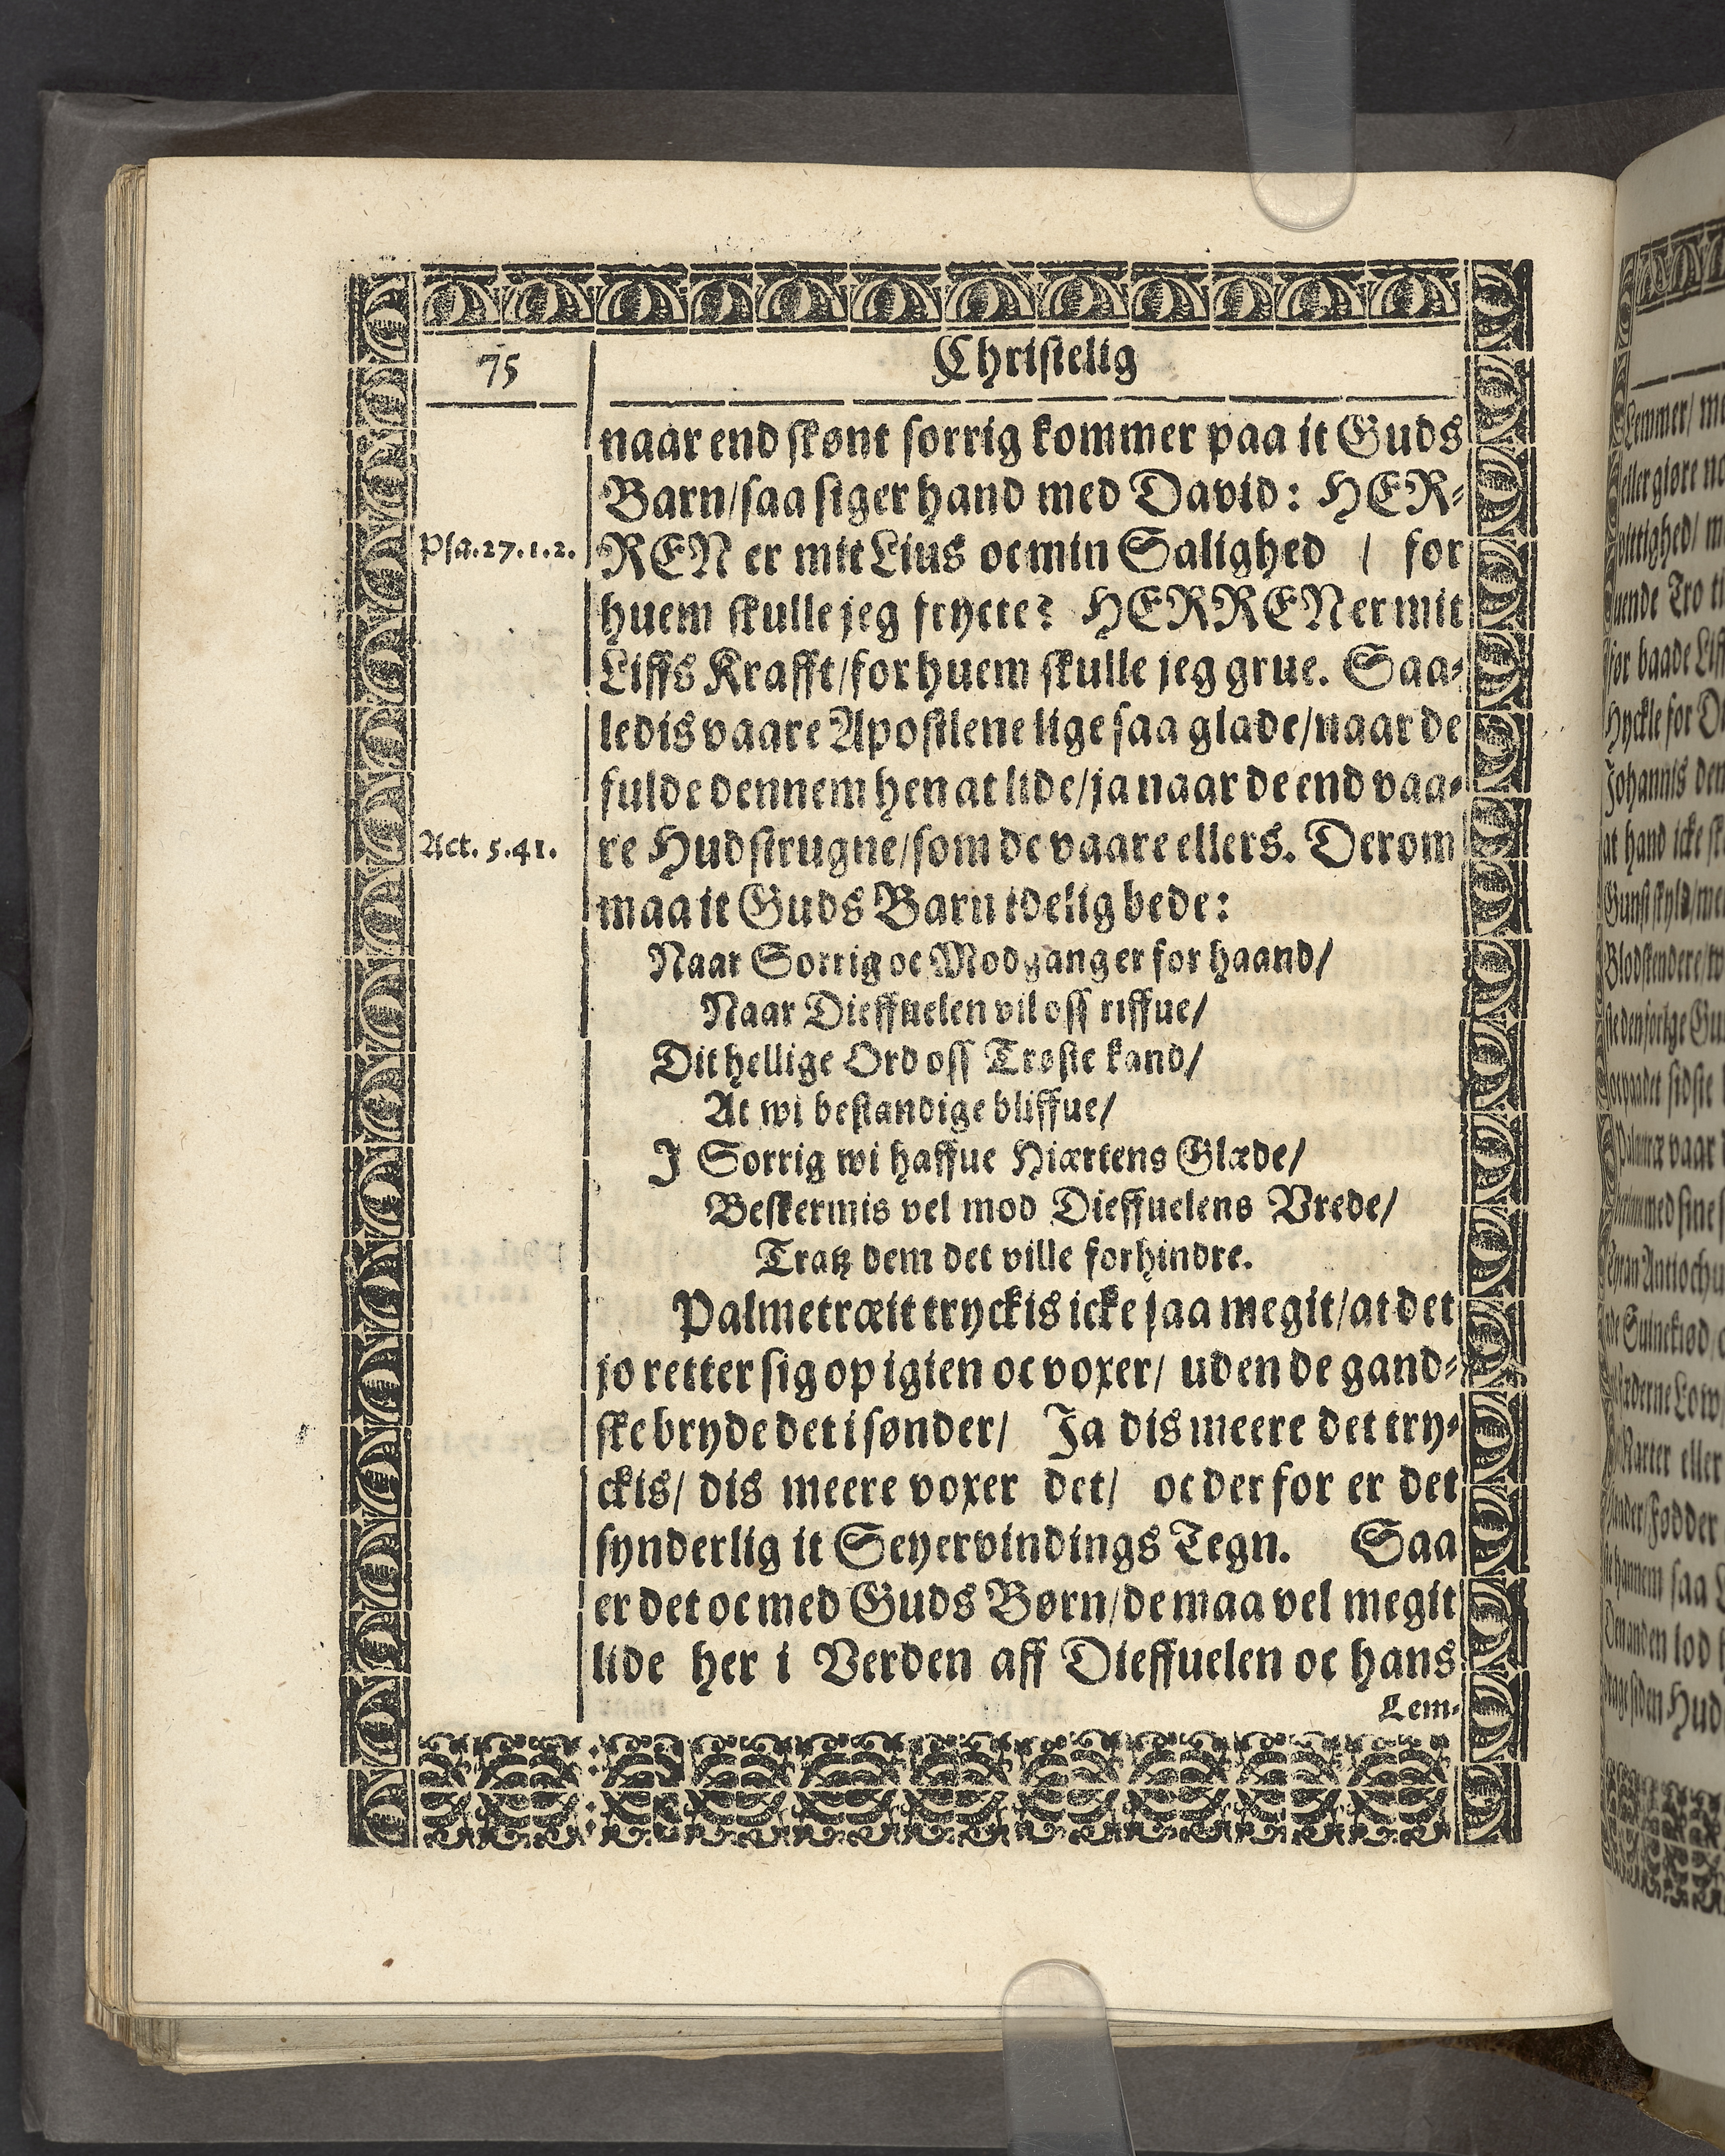 75
Christelig
naar end skønt sorrig kommer paa it Guds
Barn/saa siger hand med David: HER-
Psa.27.1.2.
REN er mit Lius oc min Salighed / for
huem skulle jeg frycte? HERREN er mit
Liffs Krafft/for huem skulle jeg grue. Saa-
ledis vaare Apostlene lige saa glade/naar de
fulde dennem hen at lide/ja naar de end vaa-
Act. 5.41.
re Hudstrugne/som de vaare ellers. Derom
maa it Guds Barn idelig bede:
Naar Sorrig oc Modgang er for haand/
Naar Dieffuelen vil oss riffue/
Dit hellige Ord oss Trøste kand/
At wi bestandige bliffue/
J Sorrig wi haffue Hiærtens Glæde/
Beskermis vel mod Dieffuelens Vrede/
Tratz dem det ville forhindre.
Palmetræit tryckis icke saa megit/at det
jo retter sig op igien oc voxer/ uden de gand-
ske bryde det i sønder/ Ja dis meere det try-
ckis/ dis meere voxer det/ oc der for er det
synderlig it Seyervindings Tegn. Saa
er det oc med Guds Børn/de maa vel megit
lide her i Verden aff Dieffuelen oc hans
Lem-